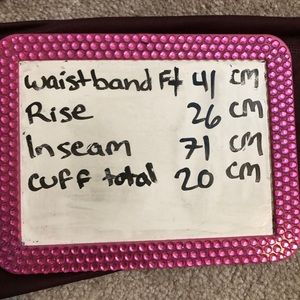 Waistband Ft 41 CM
Rise 26 CM
Inseam 71 CM
Cuff total 20 CM